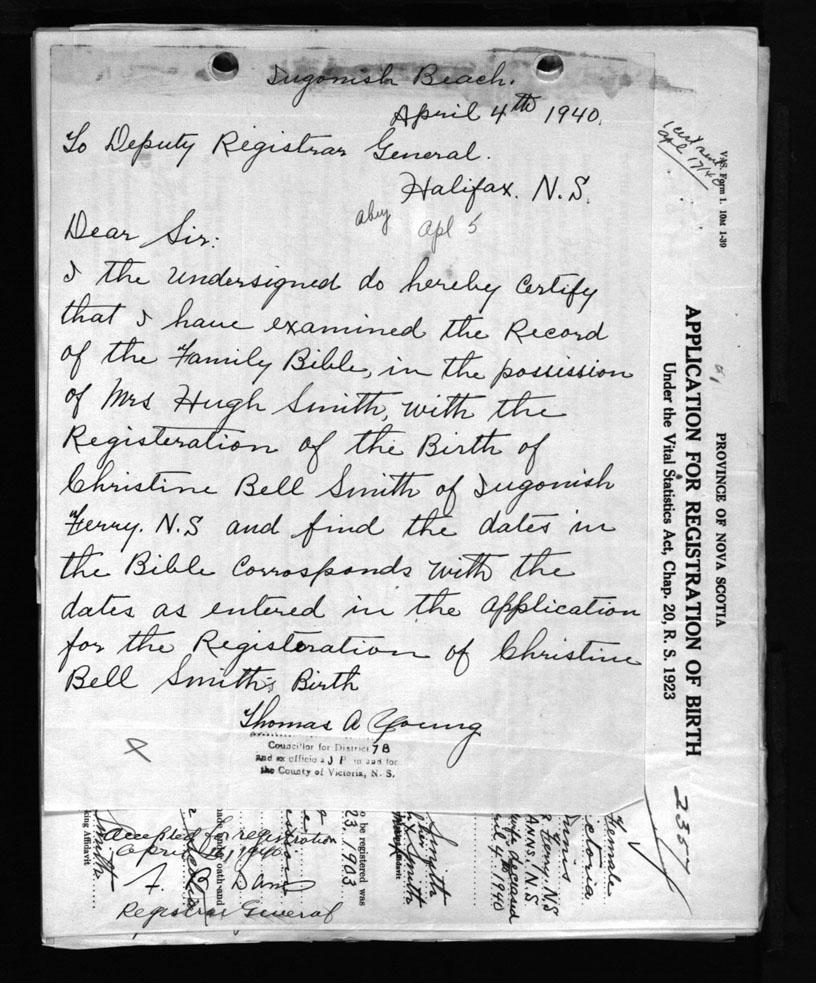 Ingonish Beach.
April 4th 1940.
To Deputy Registrar General.
Halifax. N.S.
apl 5
Dear Sir:
I the undersigned do hereby Certify
that I have examined the Record
of the Family Bible, in the possission
of Mrs Hugh Smith, with the
Registeration of the Birth of
Christine Bell Smith of Ingonish
Ferry. N.S and find the dates in
the Bible Corrosponds with the
dates as entered in the application
for the Registeration of Christine
Bell Smith's Birth
Thomas A Young
Councillor for District 7B
and ex officio a J P in and for
the County of Victoria, N. S.
Accepted for registration
April 16, 1940
Registrar General
apl 17/40
V.S. Form 1. 10M 1-39
PROVINCE OF NOVA SCOTIA
APPLICATION FOR REGISTRATION OF BIRTH
Under the Vital Statistics Act, Chap. 20, R. S. 1923
2357
Female
Ferry, N.S
ANNS, N.S
deceased
4, 1940
Smyth
Smith
to be registered was
23, 1903
oath and
king Affidavit